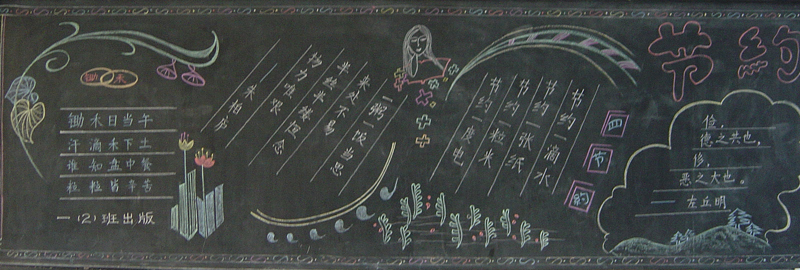 锄禾
锄禾日当午
汗滴禾下土
谁知盘中餐
粒粒皆辛苦
一(2)班出版
一粥一饭当思
来处不易
半丝半缕恒念
物力维艰
——朱柏庐
节约一滴水
节约一张纸
节约一粒米
节约一度电
四节约
节约
俭,
德之共也,
侈,
恶之大也。
——左丘明